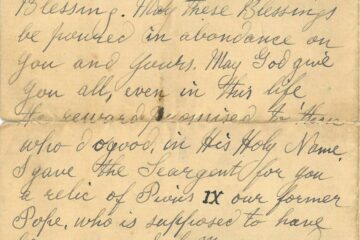 Blessing. May these Blessings
be poured in abundance on
you and yours. May God give
you all, even in this life
the reward promised to them
who do good, in His Holy Name.
I gave the Seargent for you
a relic of Pious IX our former
Pope, who is supposed to have